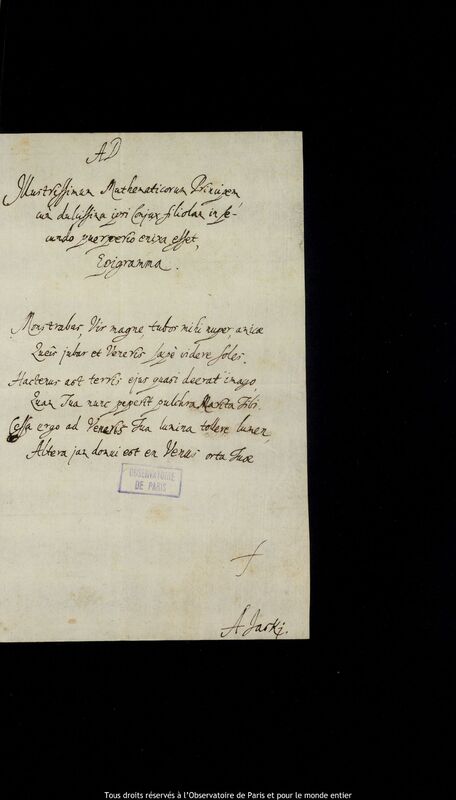 AD
Illustrissimum Mathematicorum Principem
cum dulcissima ipsi Conjux filiolam in se-
cundo puerperio enixa esset,
Epigramma.
Monstrabas Vir magne, tubos mihi nuper, amice
Queis jubar et Veneris sæpè videre soles.
Hactenus ast terris ejus quasi deerat imago,
Quam Tua nunc peperit pulchra Marita Tibi.
Cessa ergo ad Veneris Tua lumina tollere lumen,
Altera jam domui est en Venus orta Tuæ
OBSERVATOIRE
DE PARIS
A Jaski.
Tous droits réservés à l'Observatoire de Paris et pour le monde entier